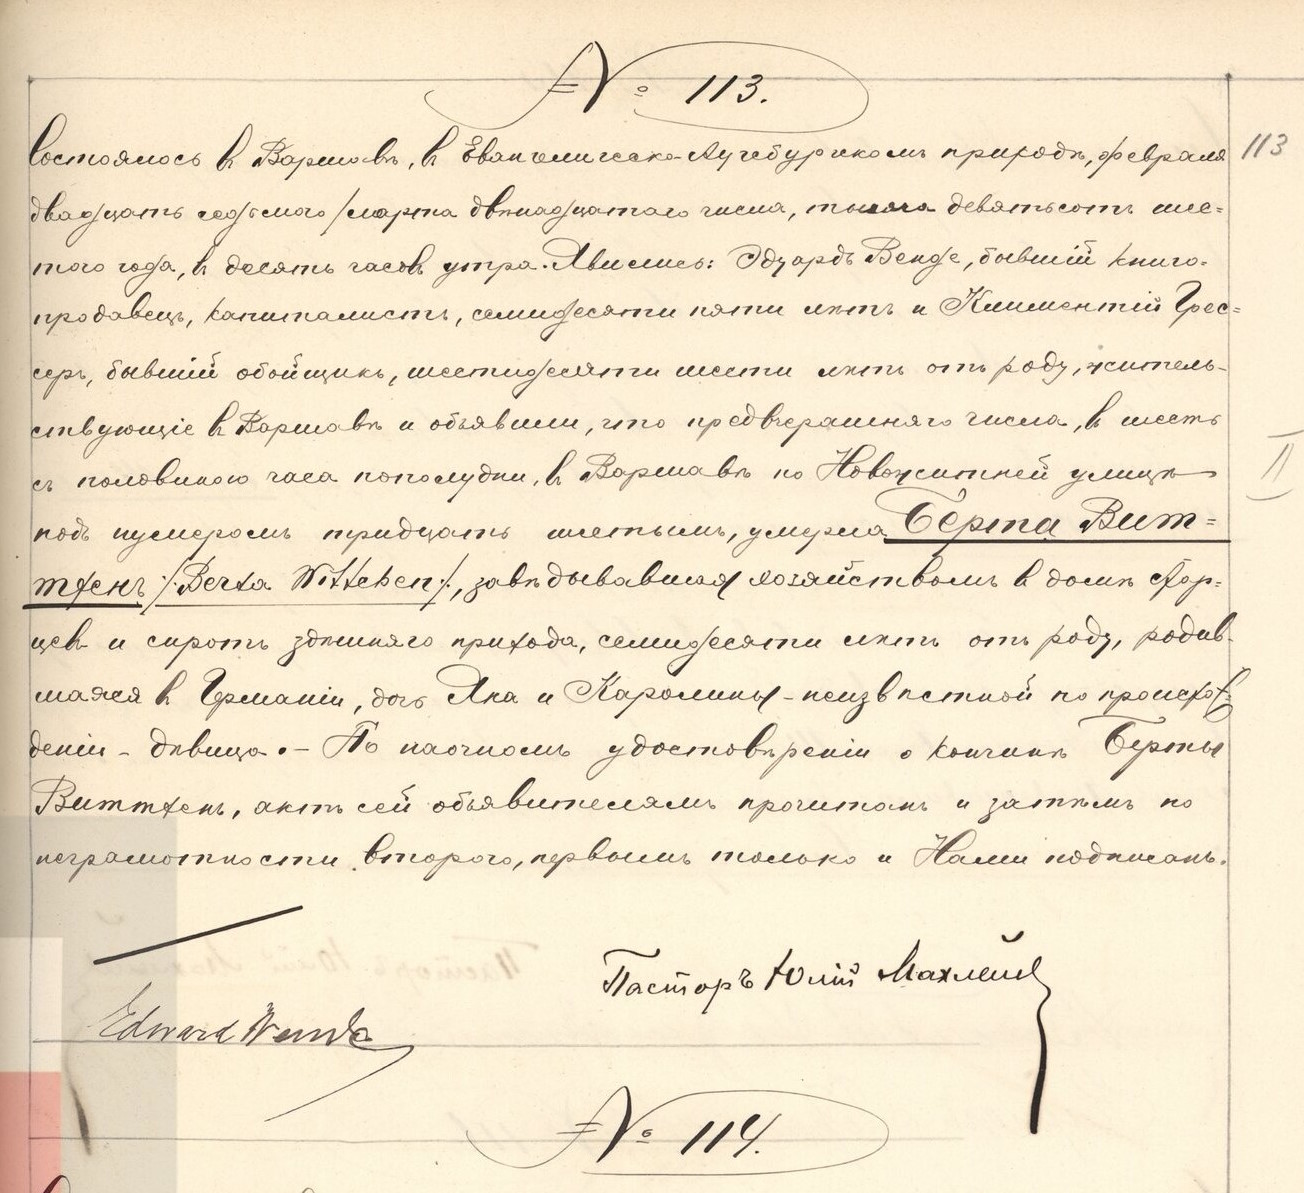 № 113.
Состоялось въ Варшавѣ, въ Евангелическо-Аугсбургскомъ приходѣ, февраля 113
двадцать седьмого /марта двѣнадцатаго числа, тысяча девятьсотъ шес-
того года, въ десять часовъ утра. Явились: Эдуардъ Венде, бывшій книго-
продавецъ, капиталистъ, семидесяти пяти лѣтъ и Климентій Грес-
серъ, бывшій обойщикъ, шестидесяти шести лѣтъ отъ роду, житель-
ствующіе въ Варшавѣ и объявили, что предвчерашняго числа, въ шесть
съ половиною часа пополудни, въ Варшавѣ по Новожитней улицѣ II
подъ нумеромъ тридцать шестымъ, умерла Берта Вит-
тхенъ /:Berta Wittchen:/, завѣдывавшая хозяйствомъ въ домѣ стар-
цевъ и сиротъ здѣшняго прихода, семидесяти лѣтъ отъ роду, родив-
шаяся въ Германіи, дочь Яна и Каролины - неизвѣстной по происхож-
деніи - дѣвица. - По наочномъ удостовѣреніи о кончинѣ Берты
Виттхенъ, актъ сей объявителямъ прочитанъ и затѣмъ по
неграмотности второго, первымъ только и Нами подписанъ.
Пасторъ Юлій Махлейд
Edward Wende
№ 114.